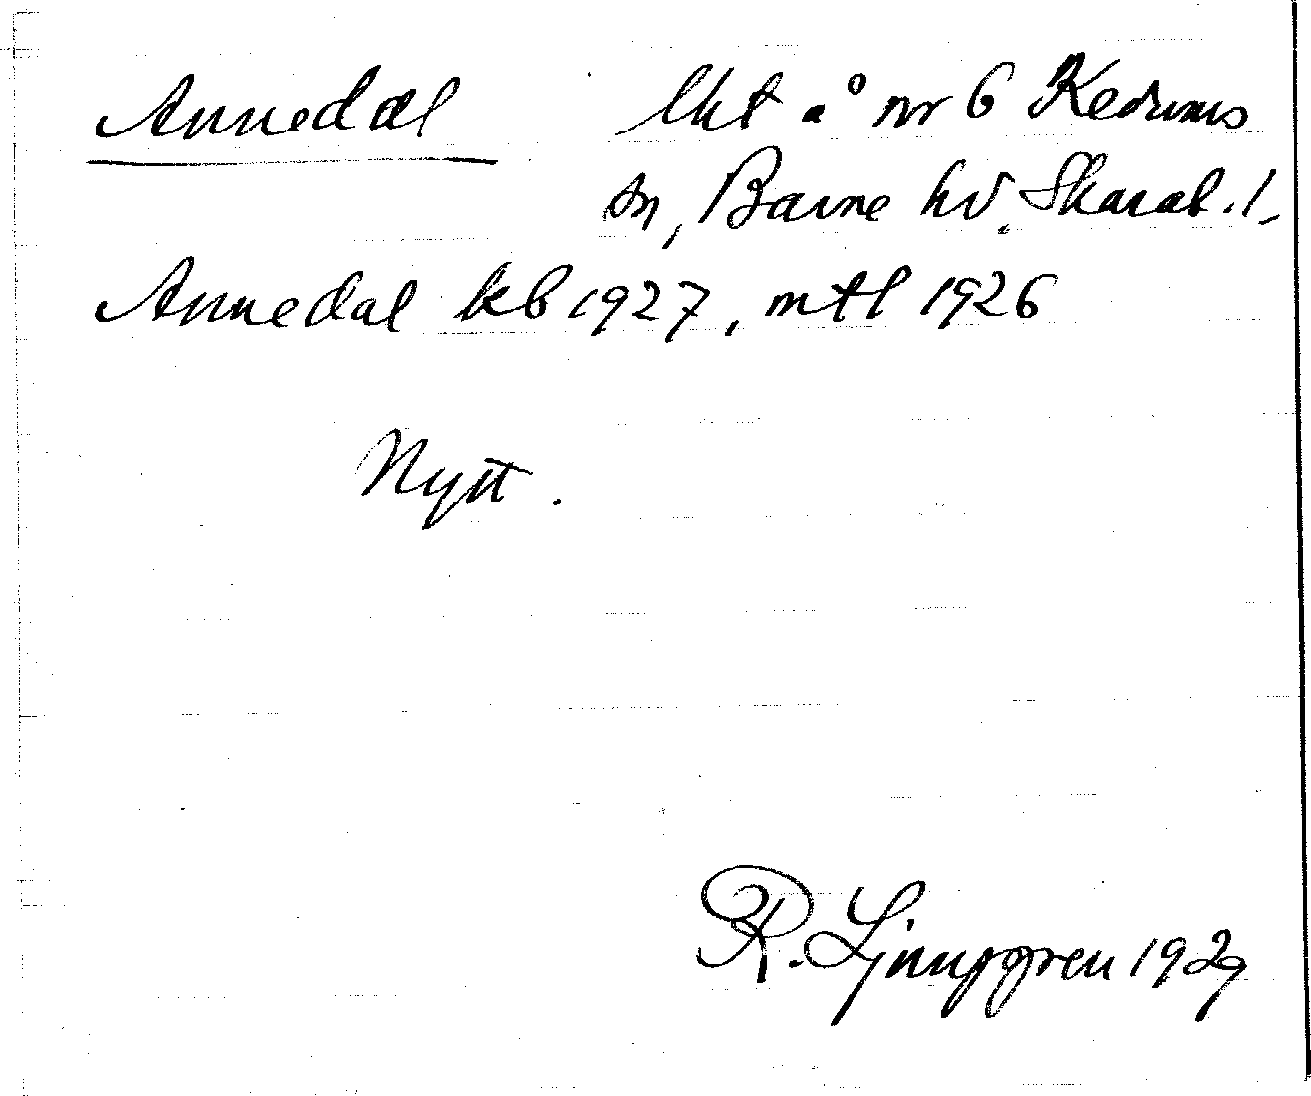 Annedal lht å nr 6 Kedums
sn, Barne hd. Skarab. l.
Annedal kb 1927, mtl 1926
Nytt.
R. Ljunggren 1929